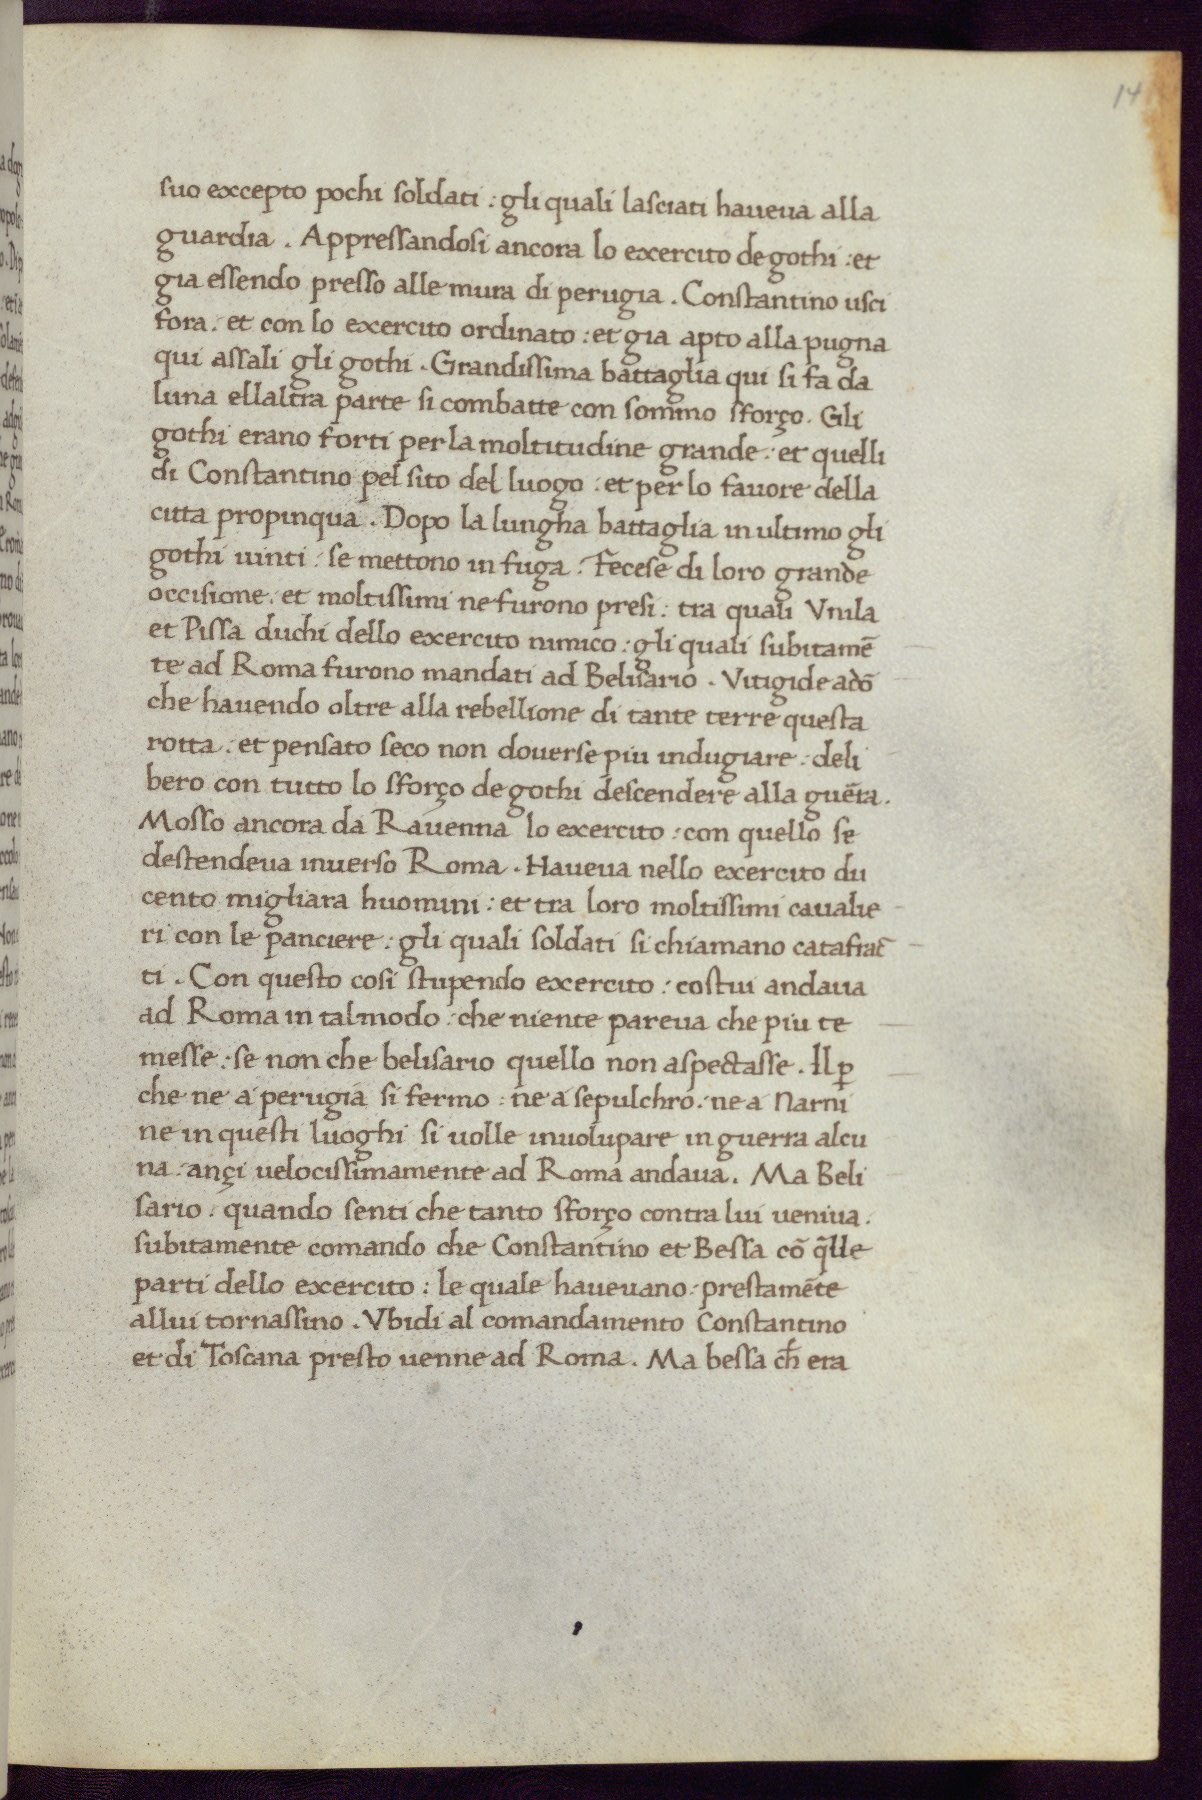 14
suo excepto pochi soldati : gli quali lasciati haueua alla
guardia . Appressandosi ancora lo exercito de gothi : et
gia essendo presso alle mura di perugia . Constantino usci
fora : et con lo exercito ordinato : et gia apto alla pugna
qui assali gli gothi . Grandissima battaglia qui si fa da
luna ellaltra parte si combatte con sommo sforço . Gli
gothi erano forti per la moltitudine grande : et quelli
di Constantino pel sito del luogo : et per lo fauore della
citta propinqua . Dopo la lungha battaglia in ultimo gli
gothi uinti : se mettono in fuga . Fecese di loro grande
occisione . et moltissimi ne furono presi : tra quali Vnila
et Pissa duchi dello exercito nimico : gli quali subitamē
te ad Roma furono mandati ad Belisario . Vitigide adō
che hauendo oltre alla rebellione di tante terre questa
rotta : et pensato seco non douerse piu indugiare : deli
bero con tutto lo sforço de gothi descendere alla guer̄a .
Mosso ancora da Rauenna lo exercito : con quello se
destendeua inuerso Roma . Haueua nello exercito du
cento migliara huomini : et tra loro moltissimi caualie
ri con le panciere : gli quali soldati si chiamano catafrac̄
ti . Con questo cosi stupendo exercito : costui andaua
ad Roma in tal modo : che niente pareua che piu te
messe : se non che belisario quello non aspectasse . Il ꝑ
che ne a perugia si fermo : ne a sepulchro : ne a Narni
ne in questi luoghi si uolle inuolupare in guerra alcu
na : ançi uelocissimamente ad Roma andaua . Ma Beli
sario : quando senti che tanto sforço contra lui ueniua .
subitamente comando che Constantino et Bessa cō q̄lle
parti dello exercito : le quale haueuano : prestamēte
allui tornassino . Vbidi al comandamento Constantino
et di Toscana presto uenne ad Roma . Ma bessa cħ era